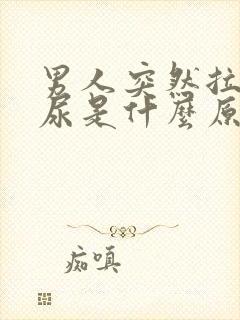 男人突然拉
尿是什麼原
痴嗔